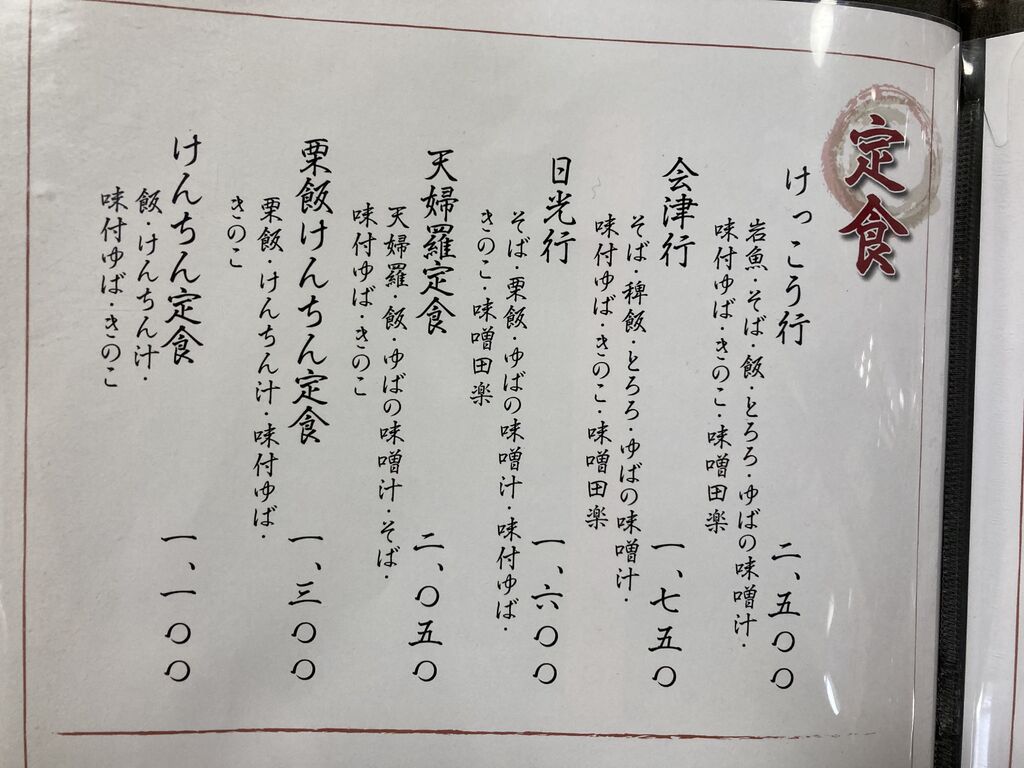 定食
けっこう行
二、五〇〇
岩魚・そば・飯・とろろ・ゆばの味噌汁・
味付ゆば・きのこ・味噌田楽
会津行
一、七五〇
そば・稗飯・とろろ・ゆばの味噌汁・
味付ゆば・きのこ・味噌田楽
日光行
一、六〇〇
そば・栗飯・ゆばの味噌汁・味付ゆば・
きのこ・味噌田楽
天婦羅定食
二、〇五〇
天婦羅・飯・ゆばの味噌汁・そば・
味付ゆば・きのこ
栗飯けんちん定食
一、三〇〇
栗飯・けんちん汁・味付ゆば・
きのこ
けんちん定食
一、一〇〇
飯・けんちん汁・
味付ゆば・きのこ